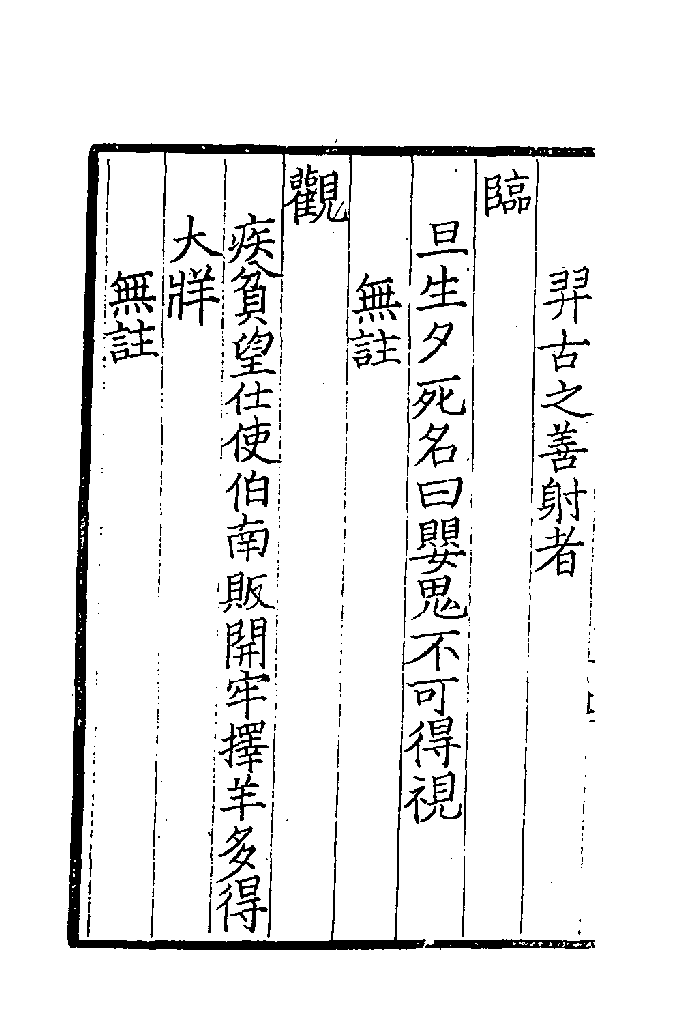 羿古之善射者
臨
旦生夕死名曰嬰鬼不可得視
無註
觀
疾貧望仕使伯南販開牢擇羊多得
大牂
無註